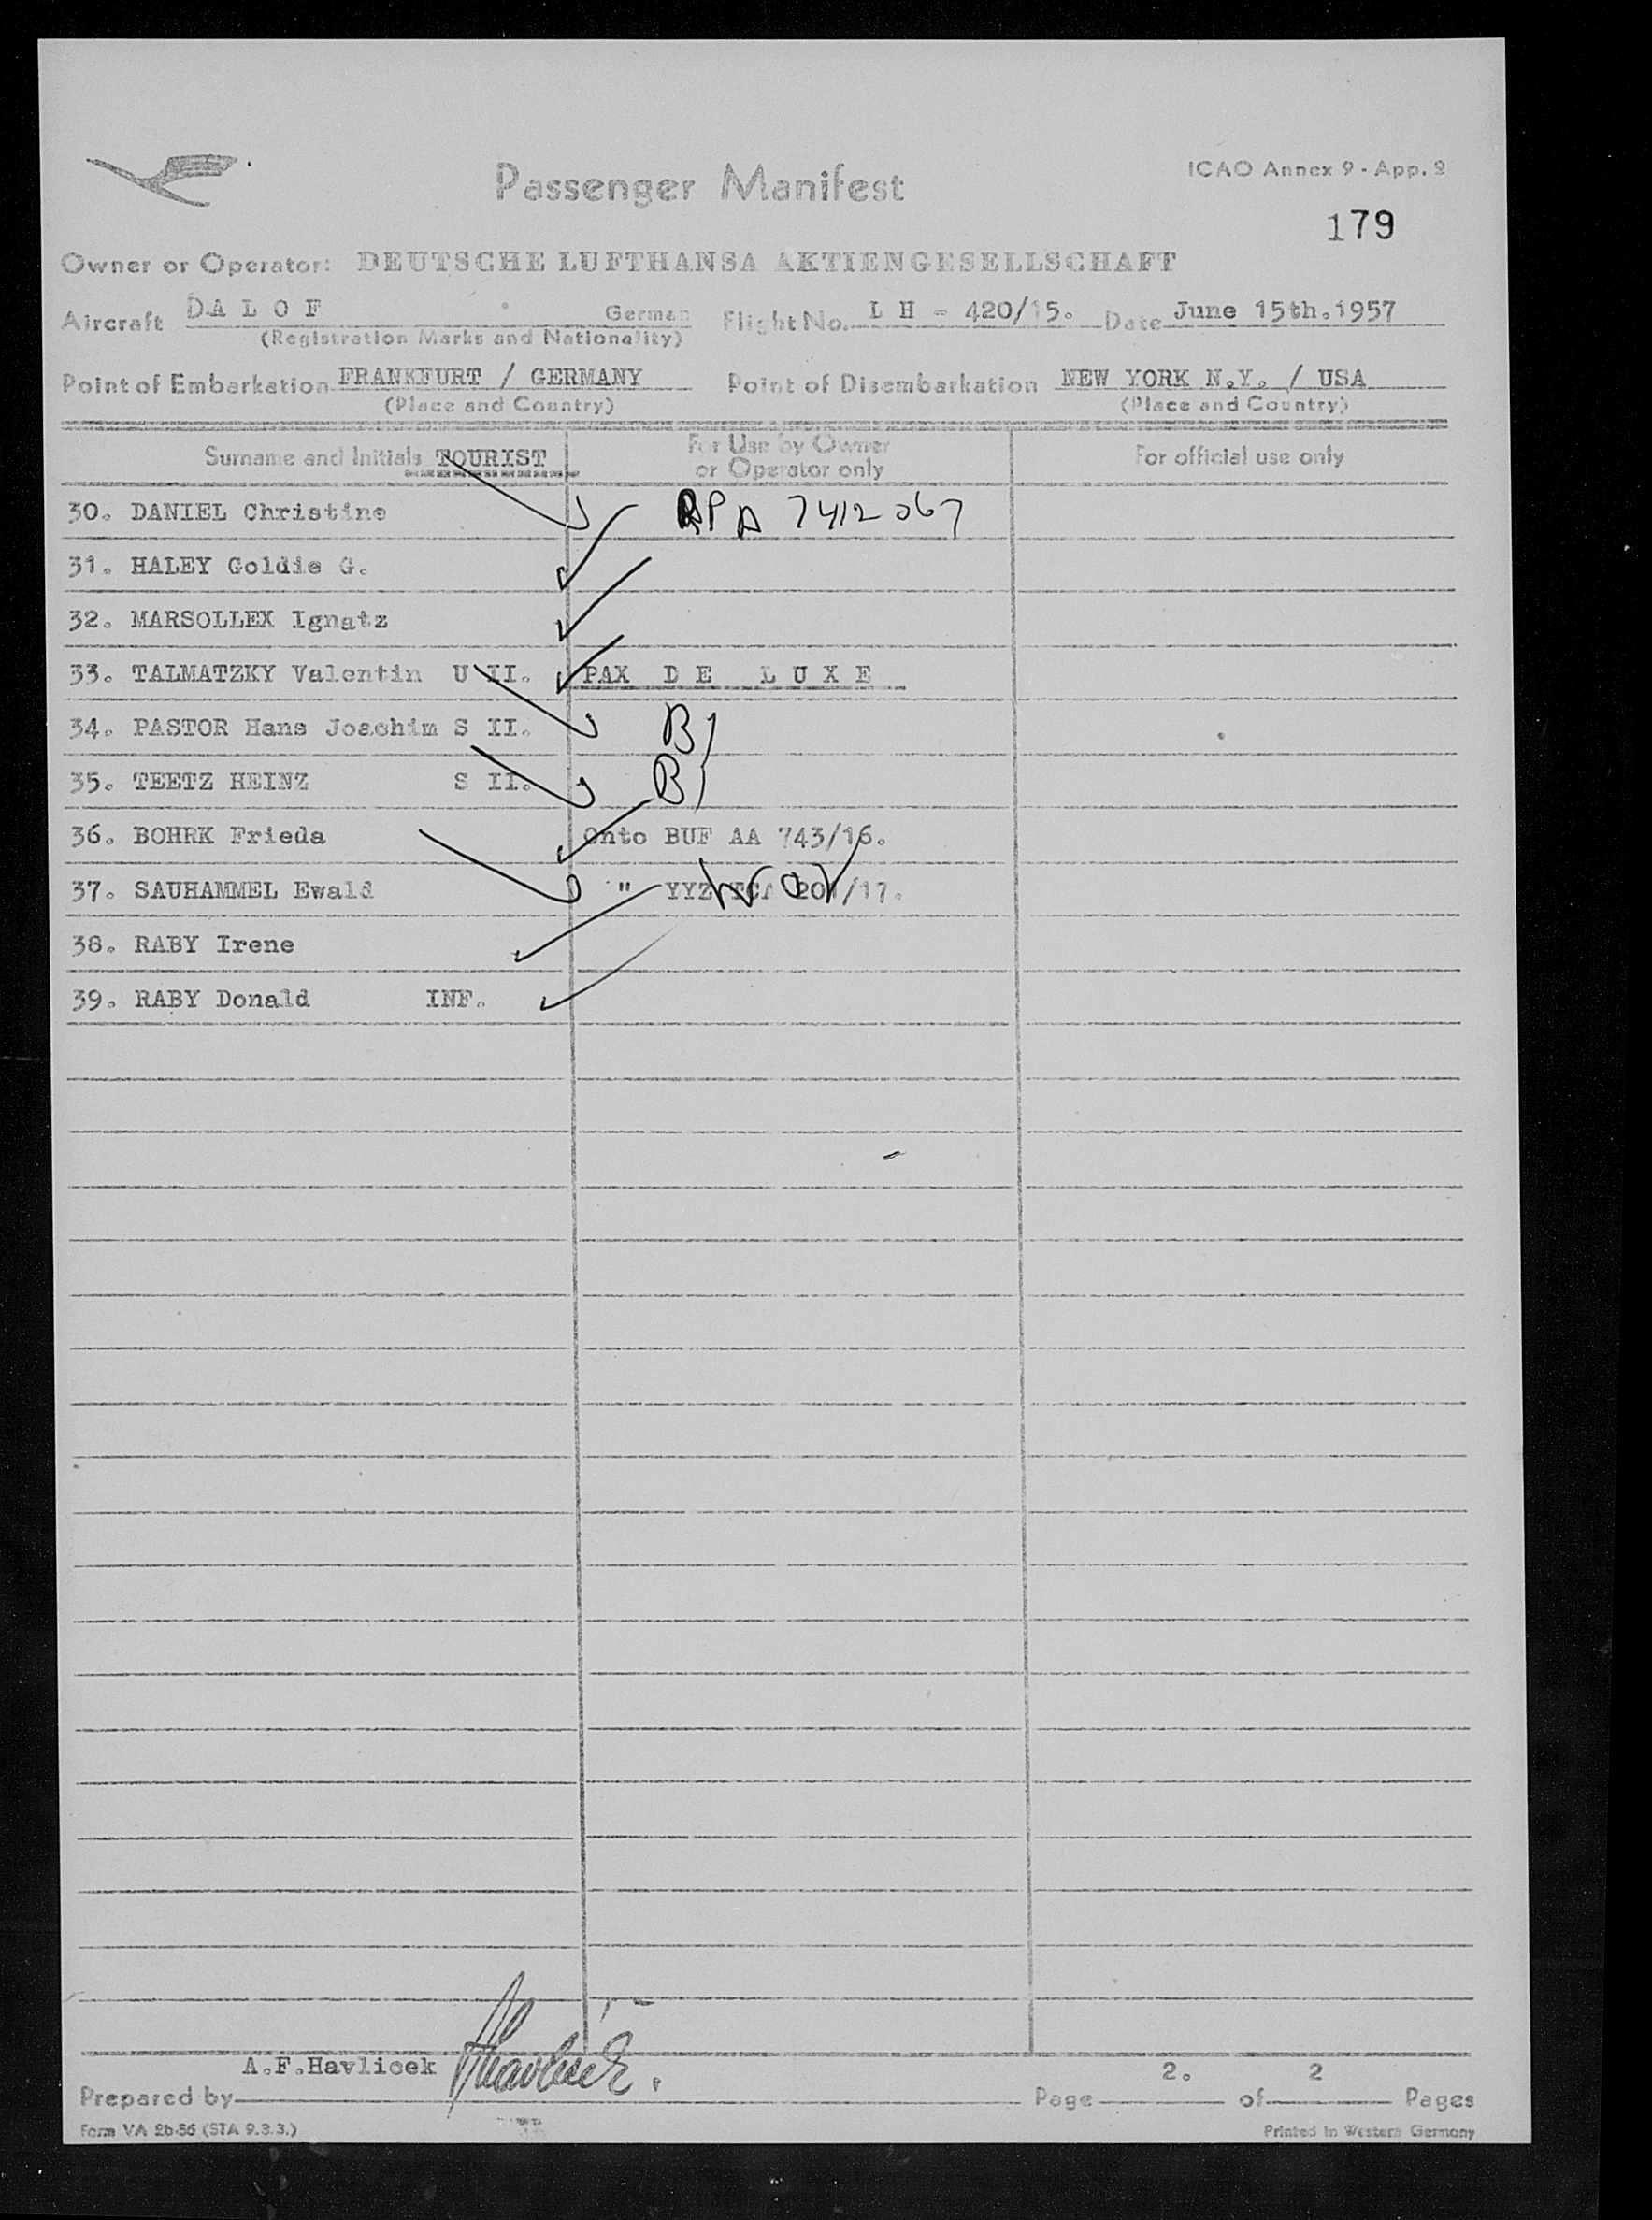 Passenger Manifest
ICAO Annex 9 - App. 2
179
Owner or Operator: DEUTSCHE LUFTHANSA AKTIENGESELLSCHAFT
Aircraft DA L O F German Flight No. L H - 420/15. Date June 15th.1957
(Registration Marks and Nationality)
Point of Embarkation FRANKFURT / GERMANY Point of Disembarkation NEW YORK N.Y. / USA
(Place and Country) (Place and Country)
Surname and Initials TOURIST For Use by Owner or Operator only For official use only
30. DANIEL Christine RPA 7412067
31. HALEY Goldie G.
32. MARSOLLEX Ignatz
33. TALMATZKY Valentin U II. PAX D E L U X E
34. PASTOR Hans Joachim S II. B1
35. TEETZ HEINZ S II. B1
36. BOHRK Frieda Onto BUF AA 743/16.
37. SAUHAMMEL Ewald " YYZ TCA /17.
38. RABY Irene
39. RABY Donald INF.
A.F.Havlicek Havlicek.
Prepared by
Page 2. of 2 Pages
Form VA 2b-56 (STA 9.3.3.)
Printed in Western Germany